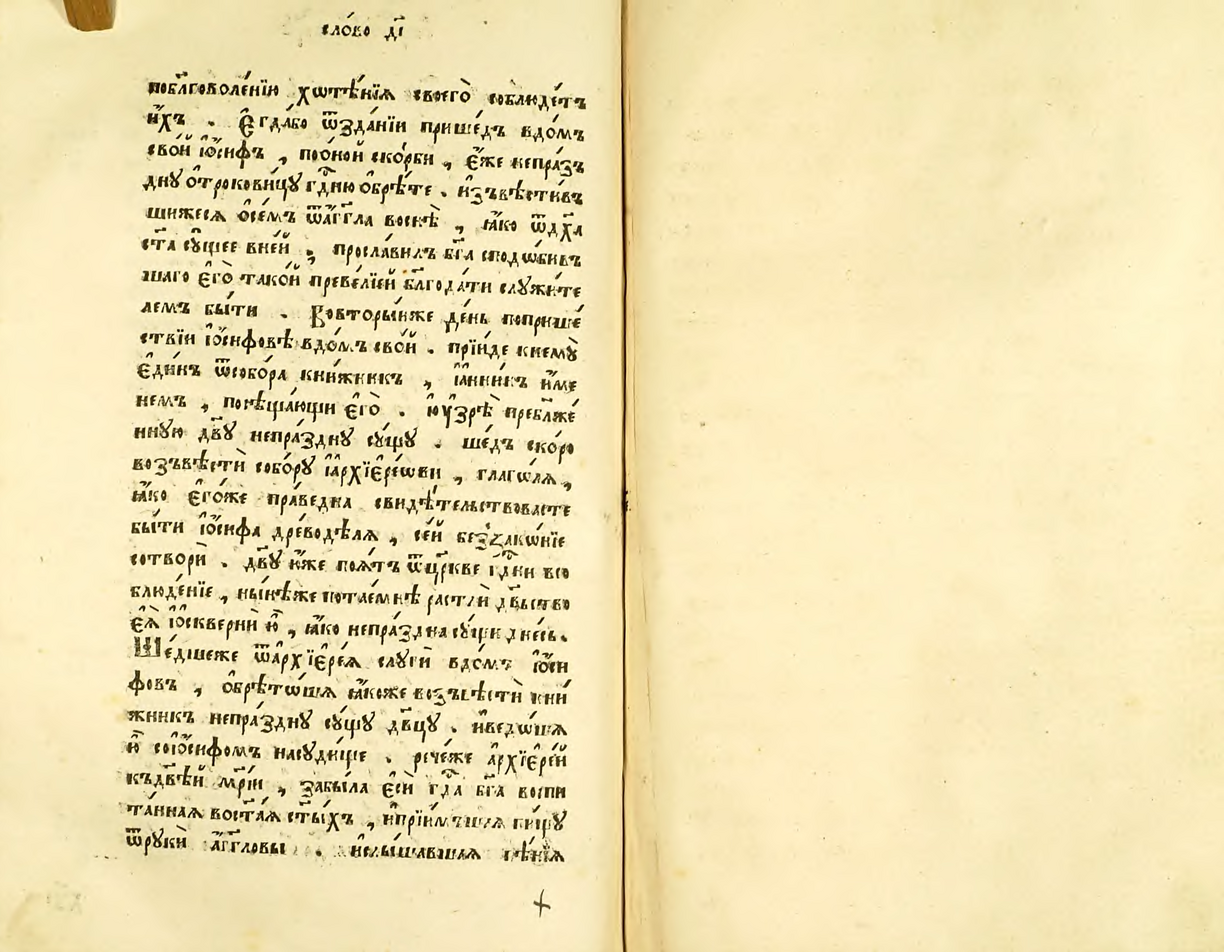 сло́во д҃і
побл҃говоле́нїю хѡтѣ́нїѧ своегѡ̀ соблюде́тъ
и́хъ . Є҆гда́бо ѿзда́нїи прише́дъ вдо́мъ
сво́й іѡ́сифъ , по о́ной ско́рби , є҆́же непра́з
дну ѻ҆трокови́цꙋ гд҇ню ѻ҆брѣ́те . и҆звѣсти́в
шижесѧ ѻ҆се́мъ ѿа҆́гг҃ла воснѣ̀ , ꙗ҆́ко ѿдх҃а
ст҃а сꙋ́щее вне́й , просла́вилъ бг҃а сподѡ́бив
шаго є҆гѡ̀ тако́й преве́лїей бл҃года́ти слꙋжи́те
лемъ бы́ти . Вовторы́йже де́нь поприше́
ствїи іѡ́сифовѣ вдо́мъ сво́й . прїи́де кнемꙋ̀
є҆ди́нъ ѿсобо́ра кни́жникъ , і҆а́нникъ и҆́ме
немъ , посѣща́ющи є҆гѡ̀ . ю҆ꙋзрѣ̀ пребл҃же́
ннꙋю дв҃ꙋ непра́зднꙋ сꙋ́щꙋ . ше́дъ ско́ро
возъвѣстѝ собо́рꙋ і҆а҆рхїє҆ре́ѡви , глаго́лѧ ,
ꙗ҆́ко є҆го́же пра́ведна свидѣ́тельствоваєте
бы́ти іѡ́сифа древодѣ́лѧ , се́й беззако́нїе
сотворѝ . дв҃ꙋ ю҆́же поѧ́тъ ѿцр҃кве гд҇ни всо
блюде́нїе , ны́нѣже потае́мнѣ растлѝ дв҃ьство
є҆ѧ̀ і҆ѡсквернѝ ю҆̀ , ꙗ҆́ко непра́здна сꙋ́щи дне́сь .
Ше́дшеже ѿа҆рхїє҆ре́ѧ слꙋги̑ вдо́мъ іѡ́си
фовъ , ѻ҆брѣто́шѧ ꙗ҆́коже возъвѣстѝ кни́
жникъ непра́зднꙋ сꙋ́щꙋ дв҃цꙋ . и҆ведо́шѧ
ю҆̀ соіѡ́сифомъ насꙋди́ще . рече́же а҆рхїє҆ре́й
къдв҃ѣй мр҃іи , забы́ла є҆сѝ гд҇а бг҃а воспи
та́ннаѧ вост҃аѧ ст҃ы́хъ , и҆прїи́мъшаѧ пи́щꙋ
ѿрꙋкѝ а҆́гг҃ловы . и҆слы́шавшаѧ пѣ́нїѧ
+